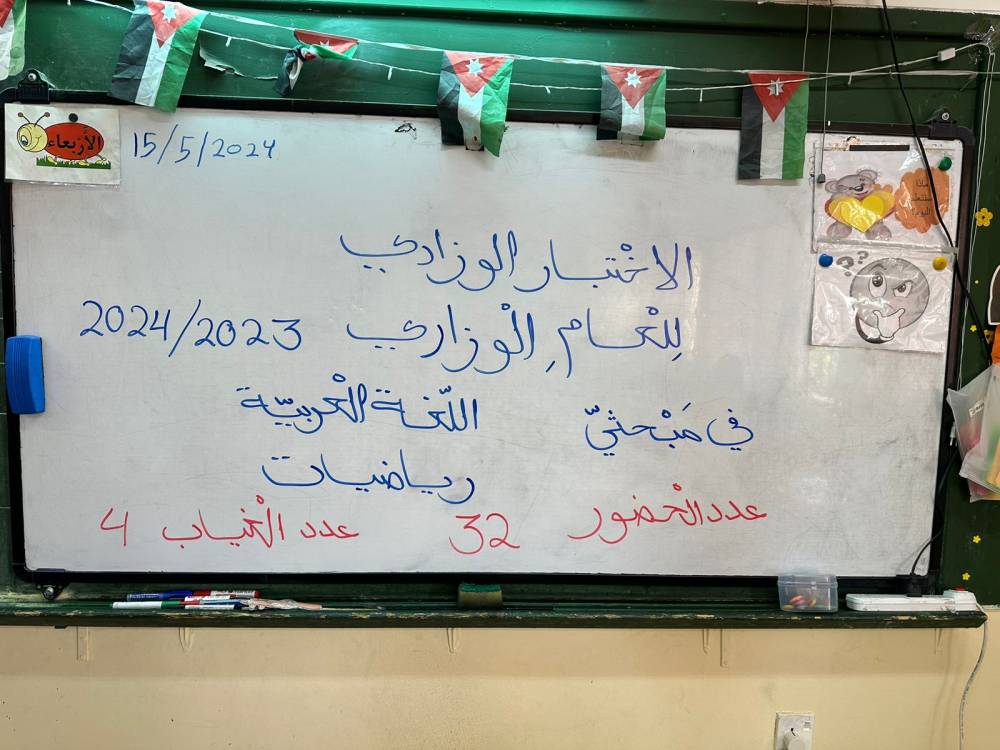 الأربعاء 15/5/2024
ماذا سنتعلم اليوم؟
??
الاخْتبار الوزاري
لِلْعامِ الْوزاري 2024/2023
في مَبْحثيّ اللّغة الْعربيّة
رياضيات
عدد الْحضور 32 عدد الْغياب 4